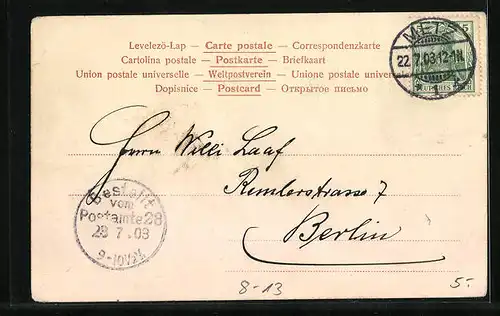 Levelezö-Lap — Carte postale — Correspondenzkarte
Cartolina postale — Postkarte — Briefkaart
Union postale universelle — Weltpostverein — Unione postale univer
Dopisnice — Postcard — Открытое письмо
METZ
22 7.03 12-1N.
* 1.
5
DEUTSCHES REICH
Herrn Willi Laaf
Remlerstrasse 7
Berlin
Bestellt
vom
Postamte 28
23 7.03
9-10V.
8-13
5.-